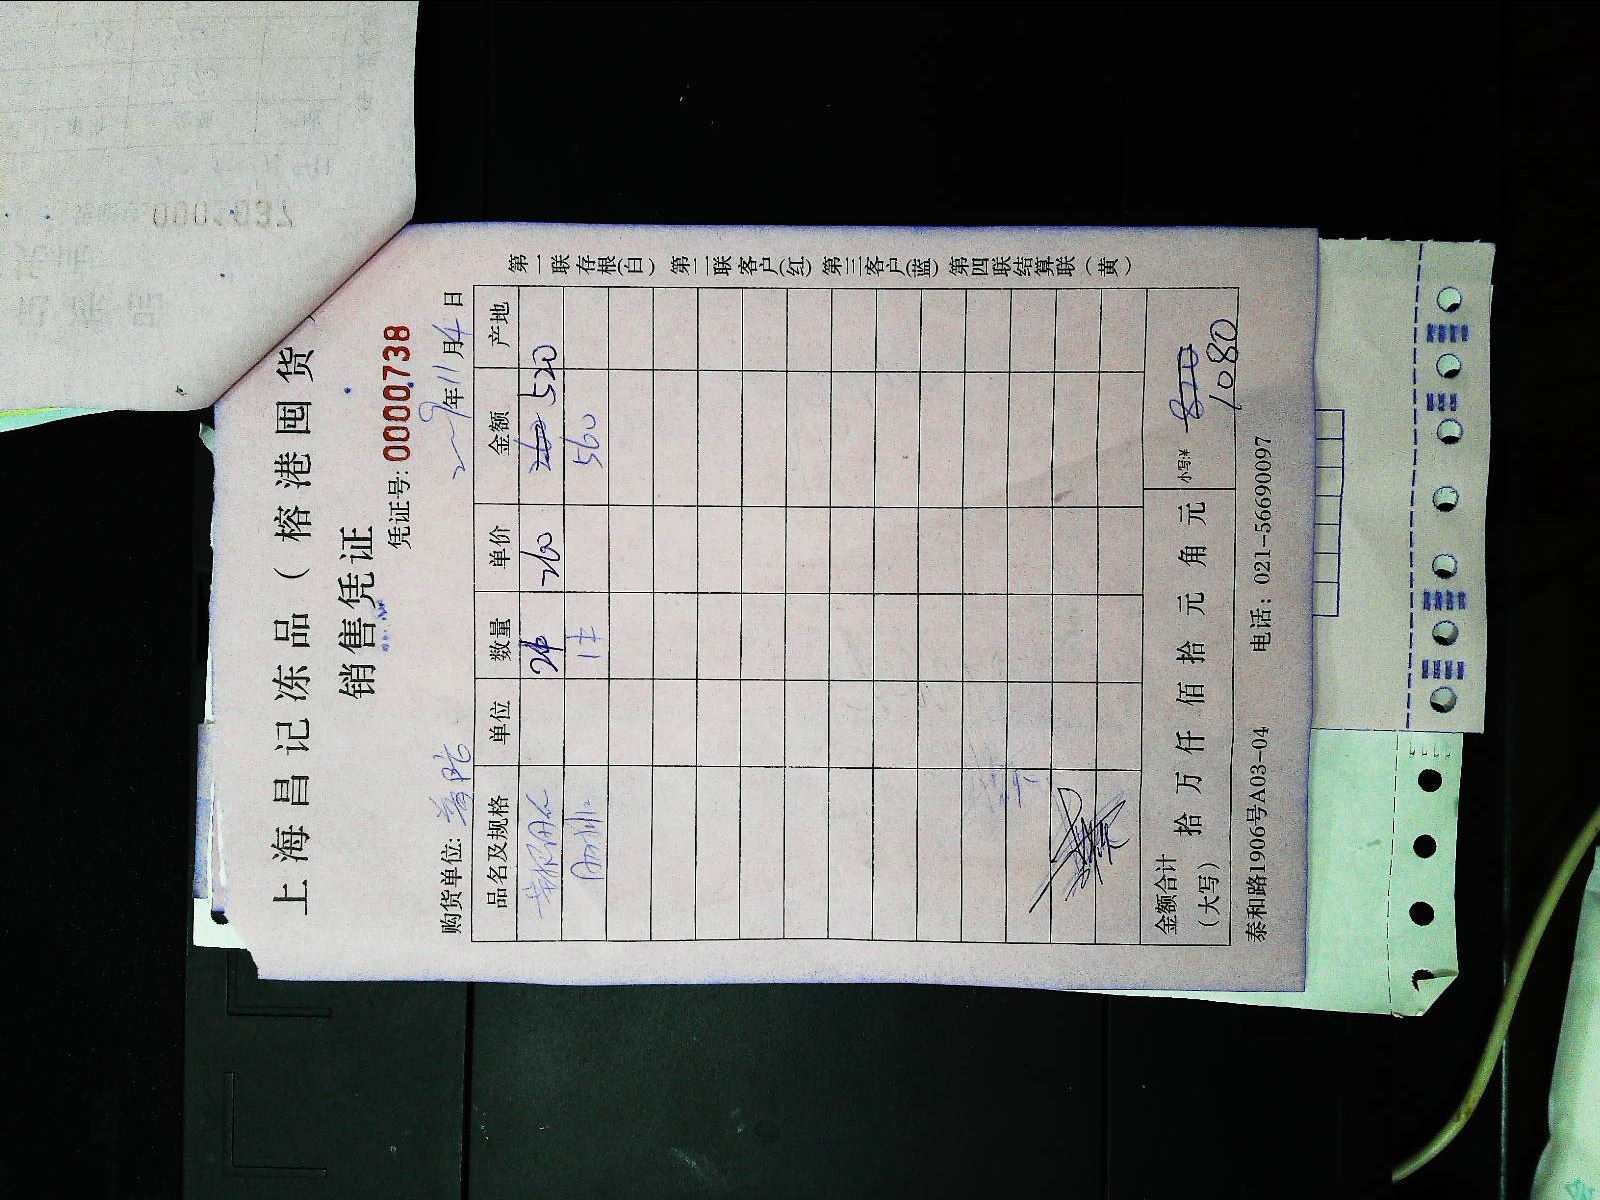 上海昌记冻品（榕港囤货
销售凭证
凭证号: 0000738
年11月4日
购货单位:
品名及规格 单位 数量 单价 金额 产地
260 520
560
金额合计（大写） 拾 万 仟 佰 拾 元 角 元 小写:¥ 820 1080
泰和路1906号A03-04 电话：021-56690097
第一联存根(白) 第二联客户(红) 第三客户(蓝) 第四联结算联（黄）